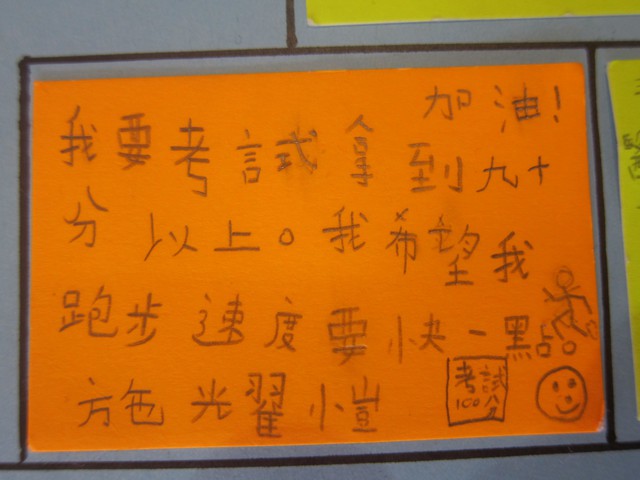 加油!
我要考試拿到九十
分以上。我希望我
跑步速度要快一點。
光翟小
考試
100分